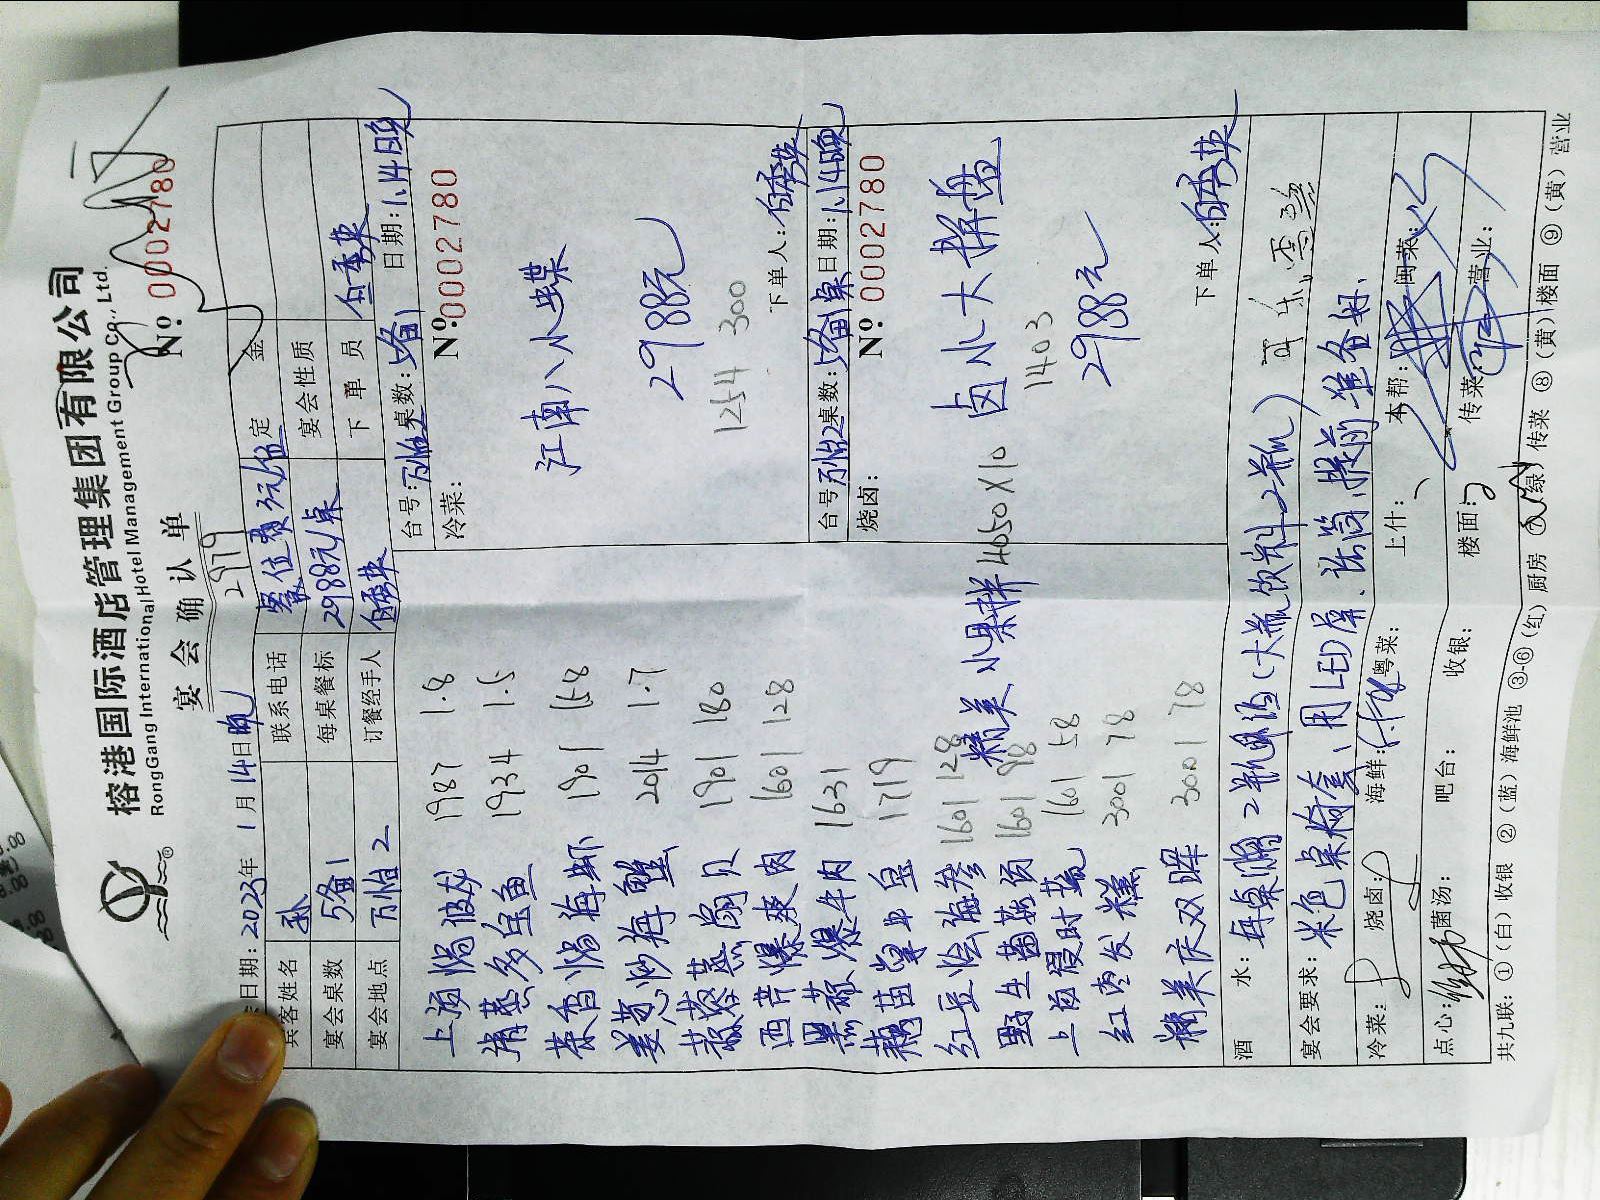 榕港国际酒店管理集团有限公司
RongGang International Hotel Management Group Co., Ltd.
宴会确认单
№ 0002780
2979
日期：2023年1月14日晚
宾客姓名 孙 联系电话 餐位费3元/位 定金
宴会桌数 5备1 每桌餐标 2988元/桌 宴会性质
宴会地点 万怡2 订餐经手人 白秀英 下单员 白秀英
上汤焗波龙 1987 1.8
清蒸多宝鱼 1934 1.5
茶香焗海虾 1901 158
姜葱炒海蟹 2014 1.7
蒜蓉蒸扇贝 1901 180
西芹爆爽肉 1601 128
黑椒爆牛肉 1631
1719
红豆烩海参 1601 128
野生菌菇汤 1601 98
1601 58
红枣发糕 3001 78
精美 3001 78
精美小果拼 4050X10
台号：万怡2 桌数：5备1 日期：1.14日晚
冷菜：
№ 0002780
江南八小蝶
2988元
1254 300
下单人：白秀英
台号 万怡2 桌数：5备1桌 日期：1.14日晚
烧卤：
№ 0002780
卤水大拼盘
1403
2988元
下单人：白秀英
酒水：每桌赠2瓶啤酒（大瓶饮料2瓶）
宴会要求：米色桌椅套、用LED屏、话筒、提前准备好.
冷菜： 烧卤： 海鲜： 粤菜： 上什： 本帮： 闽菜：
点心： 菌汤： 吧台： 收银： 楼面： 传菜： 营业：
共九联：①（白）收银 ②（蓝）海鲜池 ③-⑥（红）厨房 ⑦（绿）传菜 ⑧（黄）楼面 ⑨（黄）营业